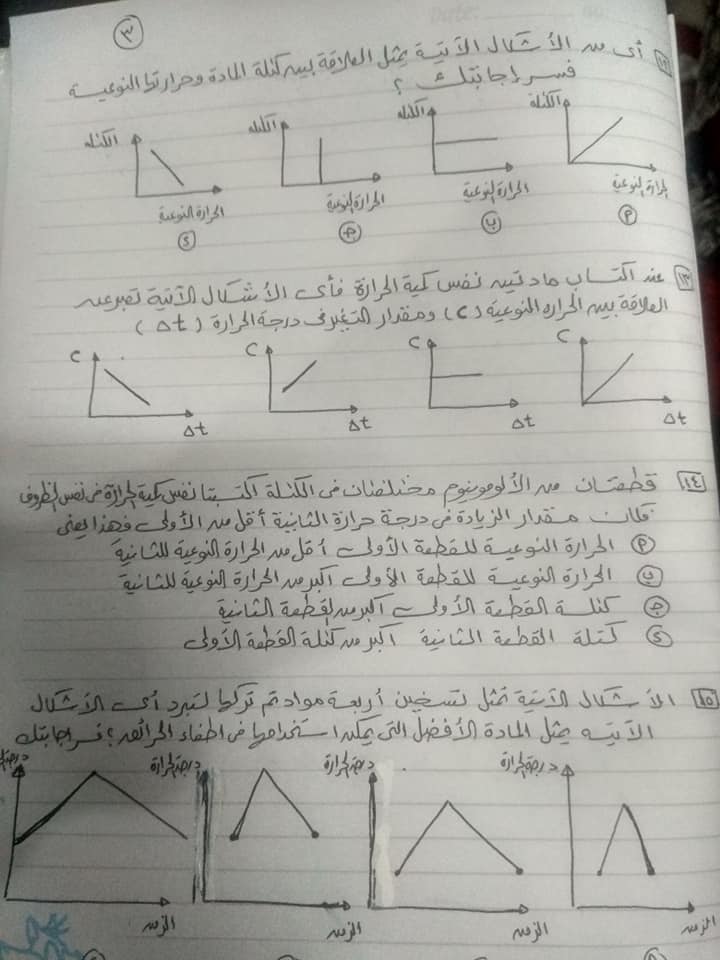 ٣
١٢ أى من الأشكال الآتية يمثل العلاقة بين كتلة المادة وحرارتها النوعية
فسر إجابتك ؟
الكتلة الكتلة الكتلة الكتلة
الحرارة النوعية الحرارة النوعية الحرارة النوعية الحرارة النوعية
أ ب ج د
١٣ عند اكتساب مادتين نفس كمية الحرارة فأى الأشكال الآتية تعبر عن
العلاقة بين الحرارة النوعية (C) ومقدار التغير فى درجة الحرارة (Δt)
C C C C
Δt Δt Δt Δt
١٤ قطعتان من الألومونيوم مختلفتان فى الكتلة اكتسبتا نفس كمية الحرارة فى نفس الظروف
فكان مقدار الزيادة فى درجة حرارة الثانية أقل من الأولى فهذا يعنى
أ الحرارة النوعية للقطعة الأولى أقل من الحرارة النوعية للثانية
ب الحرارة النوعية للقطعة الأولى أكبر من الحرارة النوعية للثانية
ج كتلة القطعة الأولى أكبر من القطعة الثانية
د كتلة القطعة الثانية أكبر من كتلة القطعة الأولى
١٥ الأشكال الآتية تمثل تسخين أربعة مواد تم تركها لتبرد أى الأشكال
الآتية يمثل المادة الأفضل التى يمكن استخدامها فى اطفاء الحرائق ؟ فسر اجابتك
درجة الحرارة درجة الحرارة درجة الحرارة درجة الحرارة
الزمن الزمن الزمن الزمن